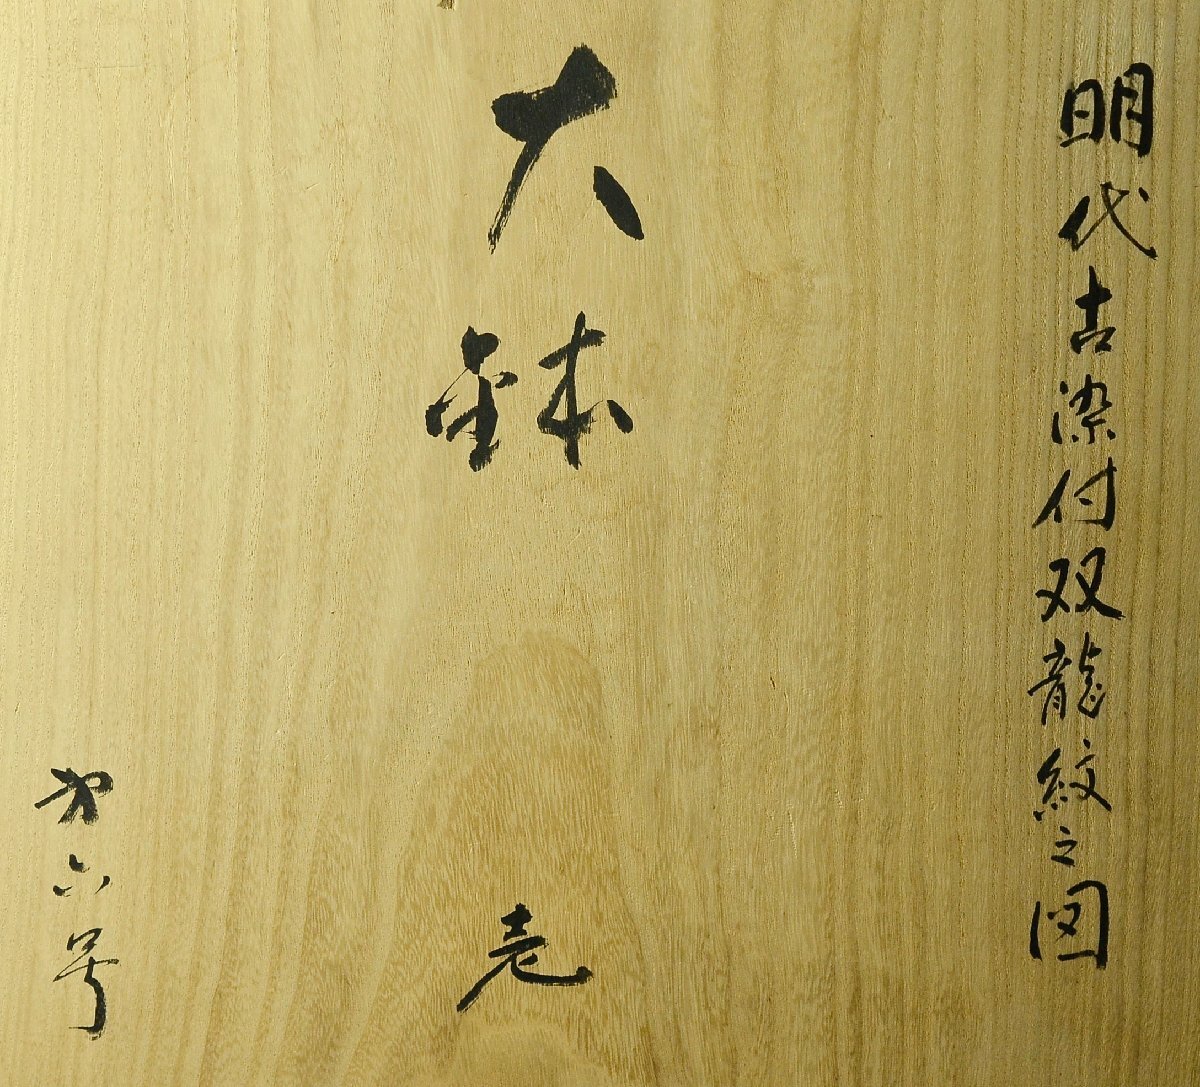 明代古染付双龍紋之図
大鉢 壱
才六号